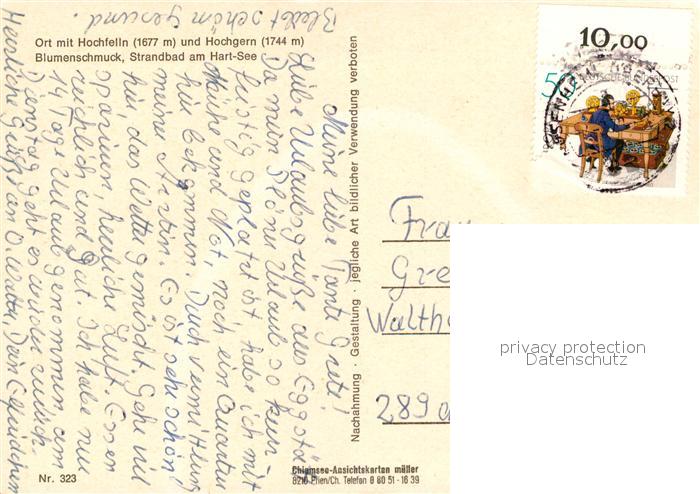 Bleibt schön gesund.
Ort mit Hochfelln (1677 m) und Hochgern (1744 m)
Blumenschmuck, Strandbad am Hart-See
Meine liebe Tante Grete!
Liebe Urlaubsgrüße aus Eggstätt
Da mein Urlaub so kurz-
fristig geplatzt ist, hab ich mit
Mühe und Not, noch ein Quartier
hier bekommen. Durch Vermittlung
meiner Ärztin. Es ist sehr schön
hier, das Wetter gemischt. Gehe viel
spazieren, herrliche Luft. Essen
reichlich und gut. Ich habe nur
14 Tage Urlaub genommen, am
Dienstag geht es wieder zurück.
Herzliche Grüße an O. Walter, Dein
Nachahmung · Gestaltung · jegliche Art bildlicher Verwendung verboten
10,00
50
DEUTSCHE BUNDESPOST
Frau
Gre
Walth
289
privacy protection
Datenschutz
Nr. 323
Chiemsee-Ansichtskarten müller
8210 Prien/Ch. Telefon 0 80 51 - 16 39